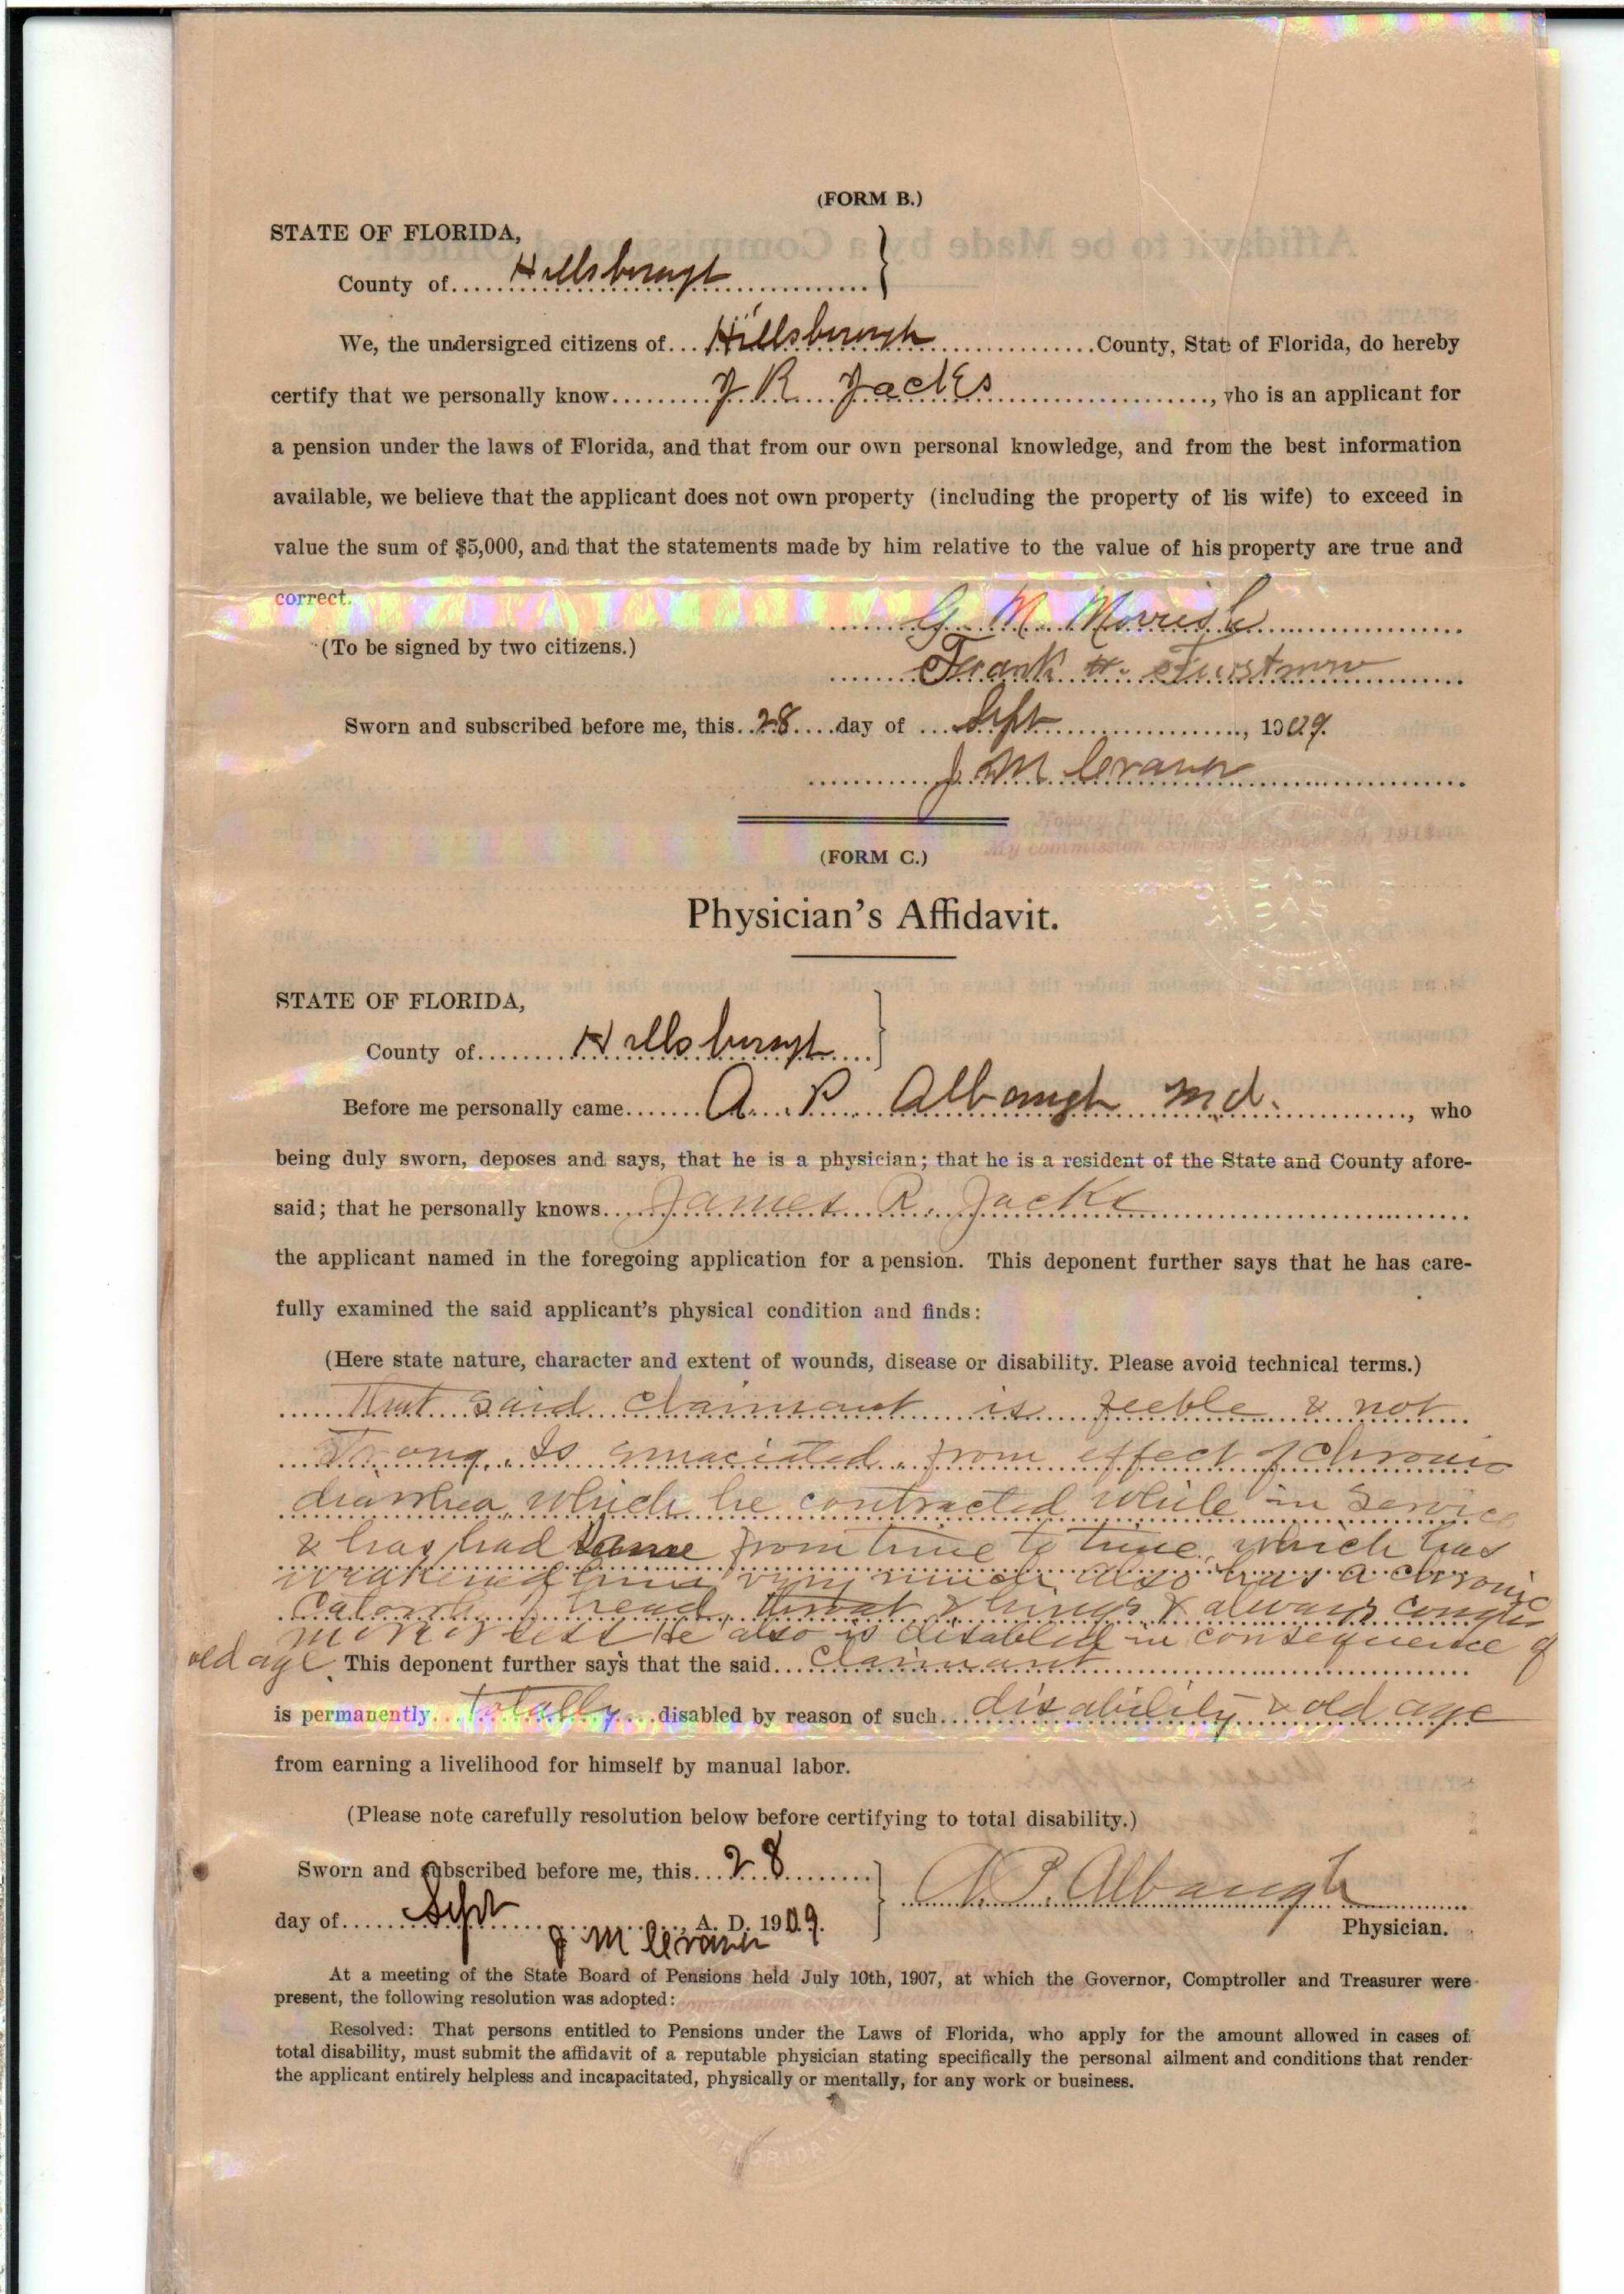 (FORM B.)
STATE OF FLORIDA,
County of Hillsborough
We, the undersigned citizens of Hillsborough County, State of Florida, do hereby
certify that we personally know J R Jackes, who is an applicant for
a pension under the laws of Florida, and that from our own personal knowledge, and from the best information
available, we believe that the applicant does not own property (including the property of his wife) to exceed in
value the sum of $5,000, and that the statements made by him relative to the value of his property are true and
correct.
G. M. Morrish
(To be signed by two citizens.)
Frank H.
Sworn and subscribed before me, this 28 day of Sept, 1909.
J M
Notary Public, State of Florida
My commission expires December
(FORM C.)
Physician's Affidavit.
STATE OF FLORIDA,
County of Hillsborough
Before me personally came A. P. Albaugh M.d., who
being duly sworn, deposes and says, that he is a physician; that he is a resident of the State and County afore-
said; that he personally knows James R. Jacks
the applicant named in the foregoing application for a pension. This deponent further says that he has care-
fully examined the said applicant's physical condition and finds:
(Here state nature, character and extent of wounds, disease or disability. Please avoid technical terms.)
That said claimant is feeble & not
strong. Is emaciated from effect of chronic
diarrhea, which he contracted while in service
& has had same from time to time, which has
weakened him very much also has a chronic
Catarrh of head, throat & lungs & always coughs
more or less He also is disabled in consequence of
old age. This deponent further says that the said claimant
is permanently totally disabled by reason of such disability & old age
from earning a livelihood for himself by manual labor.
(Please note carefully resolution below before certifying to total disability.)
Sworn and subscribed before me, this 28
A. P. Albaugh
day of Sept A. D. 1909.
Physician.
J M
At a meeting of the State Board of Pensions held July 10th, 1907, at which the Governor, Comptroller and Treasurer were
present, the following resolution was adopted:
commission expires December
Resolved: That persons entitled to Pensions under the Laws of Florida, who apply for the amount allowed in cases of
total disability, must submit the affidavit of a reputable physician stating specifically the personal ailment and conditions that render
the applicant entirely helpless and incapacitated, physically or mentally, for any work or business.